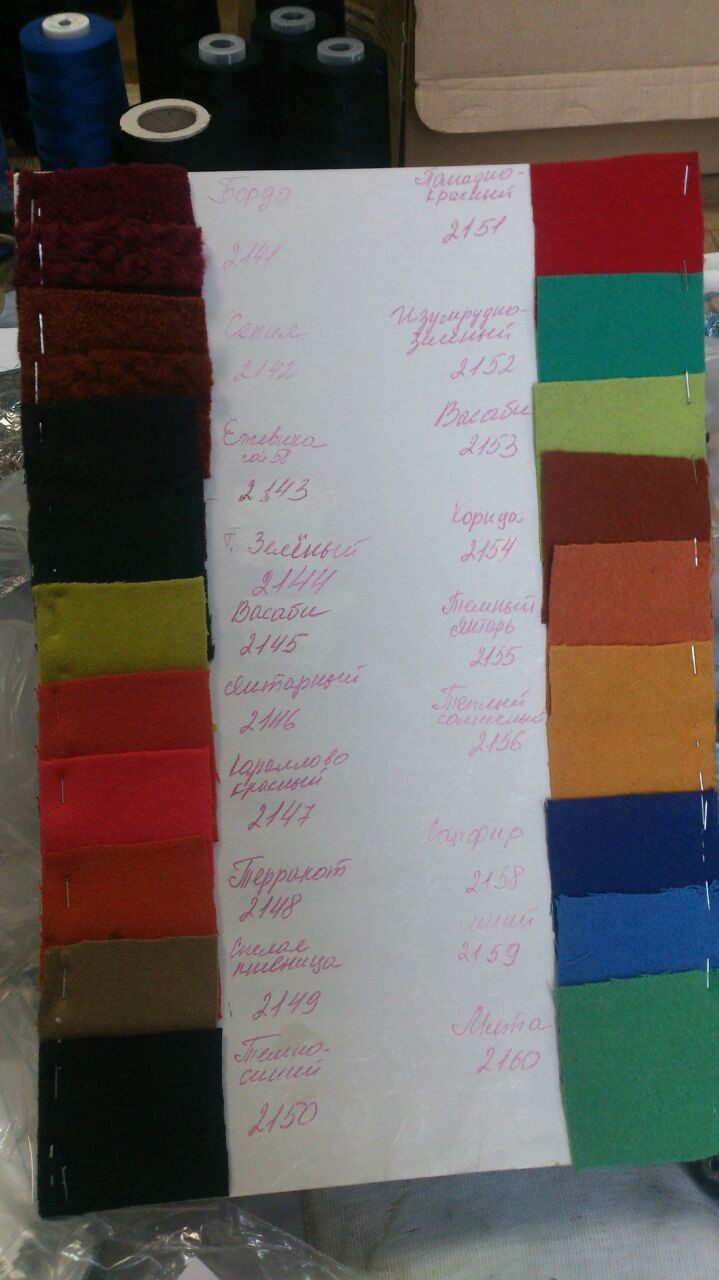 Бордо
2141
Сепия
2142
Ежевика
2143
т. Зелёный
2144
Васаби
2145
Янтарный
2146
Караллово
красный
2147
Терракот
2148
Спелая
пшеница
2149
Темно-
синий
2150
Помадно-
красный
2151
Изумрудно-
зеленый
2152
Васаби
2153
Корица
2154
Темный
янтарь
2155
Теплый
2156
Сапфир
2158
синий
2159
Мята
2160